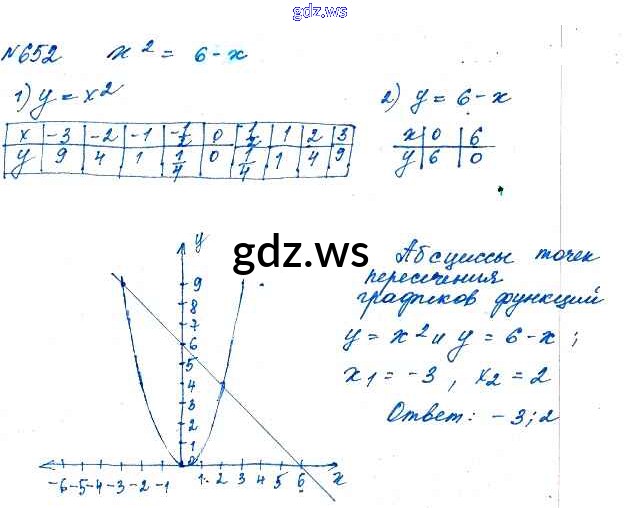 gdz.ws
№652 x² = 6 - x
1) y = x²
2) y = 6 - x
x -3 -2 -1 -1/2 0 1/2 1 2 3
y 9 4 1 1/4 0 1/4 1 4 9
x 0 6
y 6 0
gdz.ws
Абсциссы точек
пересечения
графиков функций
y = x² и y = 6 - x;
x₁ = -3, x₂ = 2
Ответ: -3; 2
y
9
8
7
6
5
4
3
2
1
0
-6 -5 -4 -3 -2 -1 1 2 3 4 5 6 x